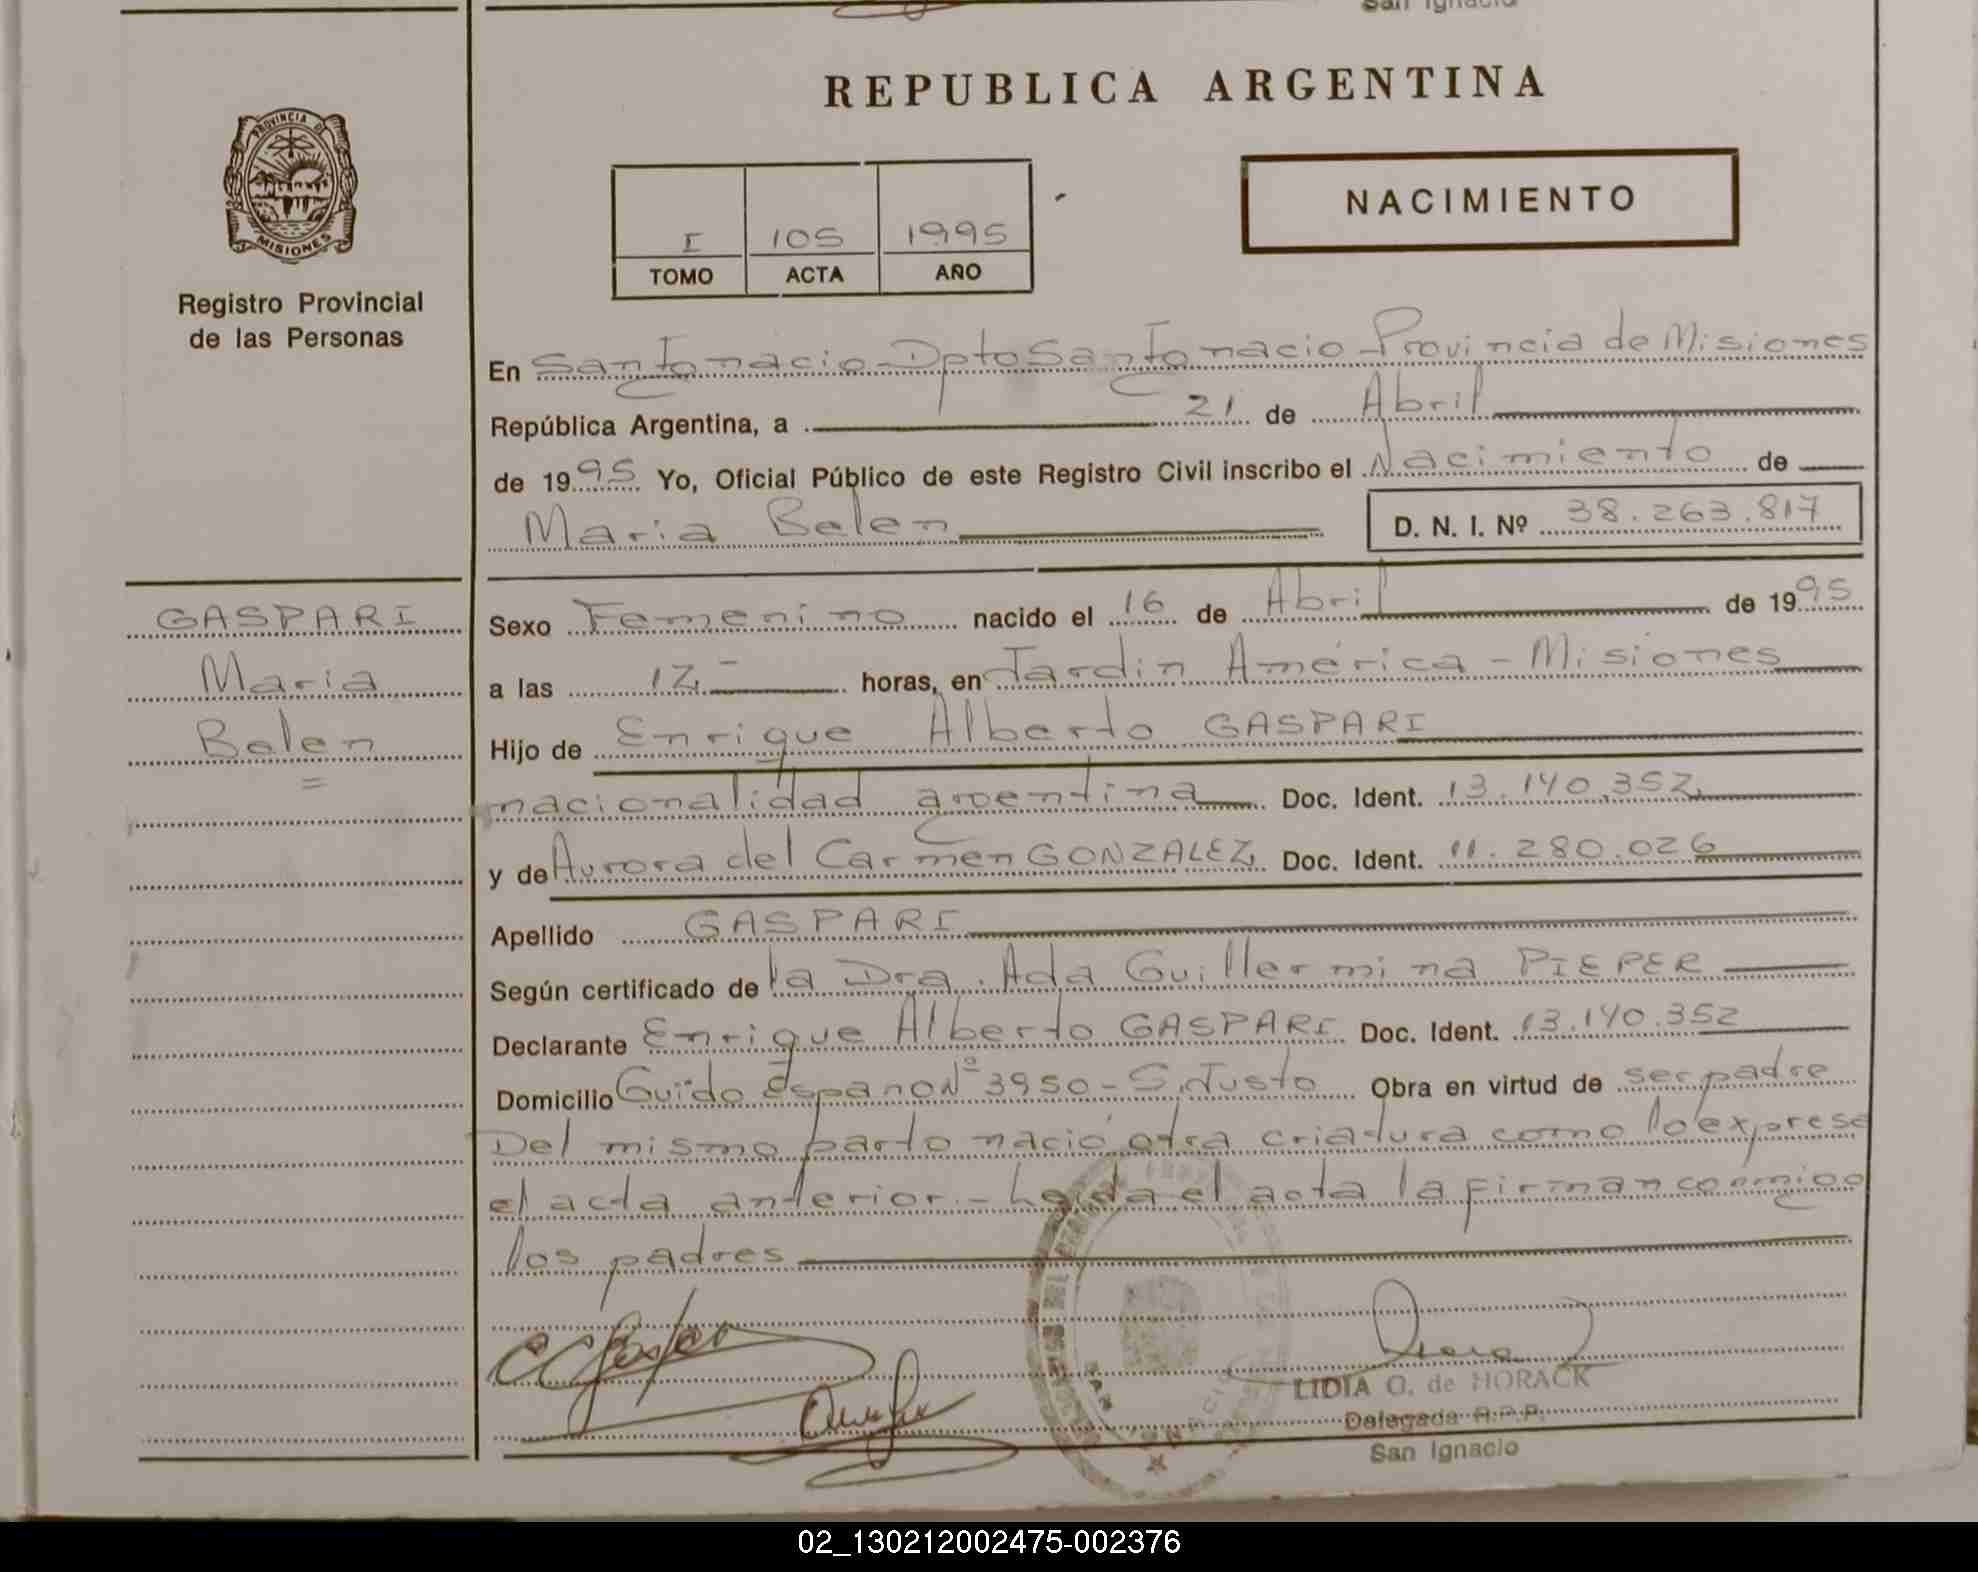 San Ignacio
REPUBLICA ARGENTINA
PROVINCIA D
MISIONES
Registro Provincial
de las Personas
I 105 1995
TOMO ACTA AÑO
NACIMIENTO
En San Ignacio - Dpto San Ignacio - Provincia de Misiones
República Argentina, a 21 de Abril
de 1995 Yo, Oficial Público de este Registro Civil inscribo el Nacimiento de
Maria Belen
D. N. I. Nº 38.263.817
GASPARI
Maria
Belen
=
Sexo Femenino nacido el 16 de Abril de 1995
a las 12.- horas, en Jardin América - Misiones
Hijo de Enrique Alberto GASPARI
nacionalidad argentina Doc. Ident. 13.140.352
y de Aurora del Carmen GONZALEZ Doc. Ident. 11.280.026
Apellido GASPARI
Según certificado de la Dra. Ada Guillermina PIEPER
Declarante Enrique Alberto GASPARI Doc. Ident. 13.140.352
Domicilio Guido Espano Nº 3950 - S. Justo Obra en virtud de ser padre
Del mismo parto nació otra criatura como lo expresa
el acta anterior.- Leída el acta la firman conmigo
los padres
LIDIA O. de HORACK
Delegada R.P.P.
San Ignacio
02_130212002475-002376